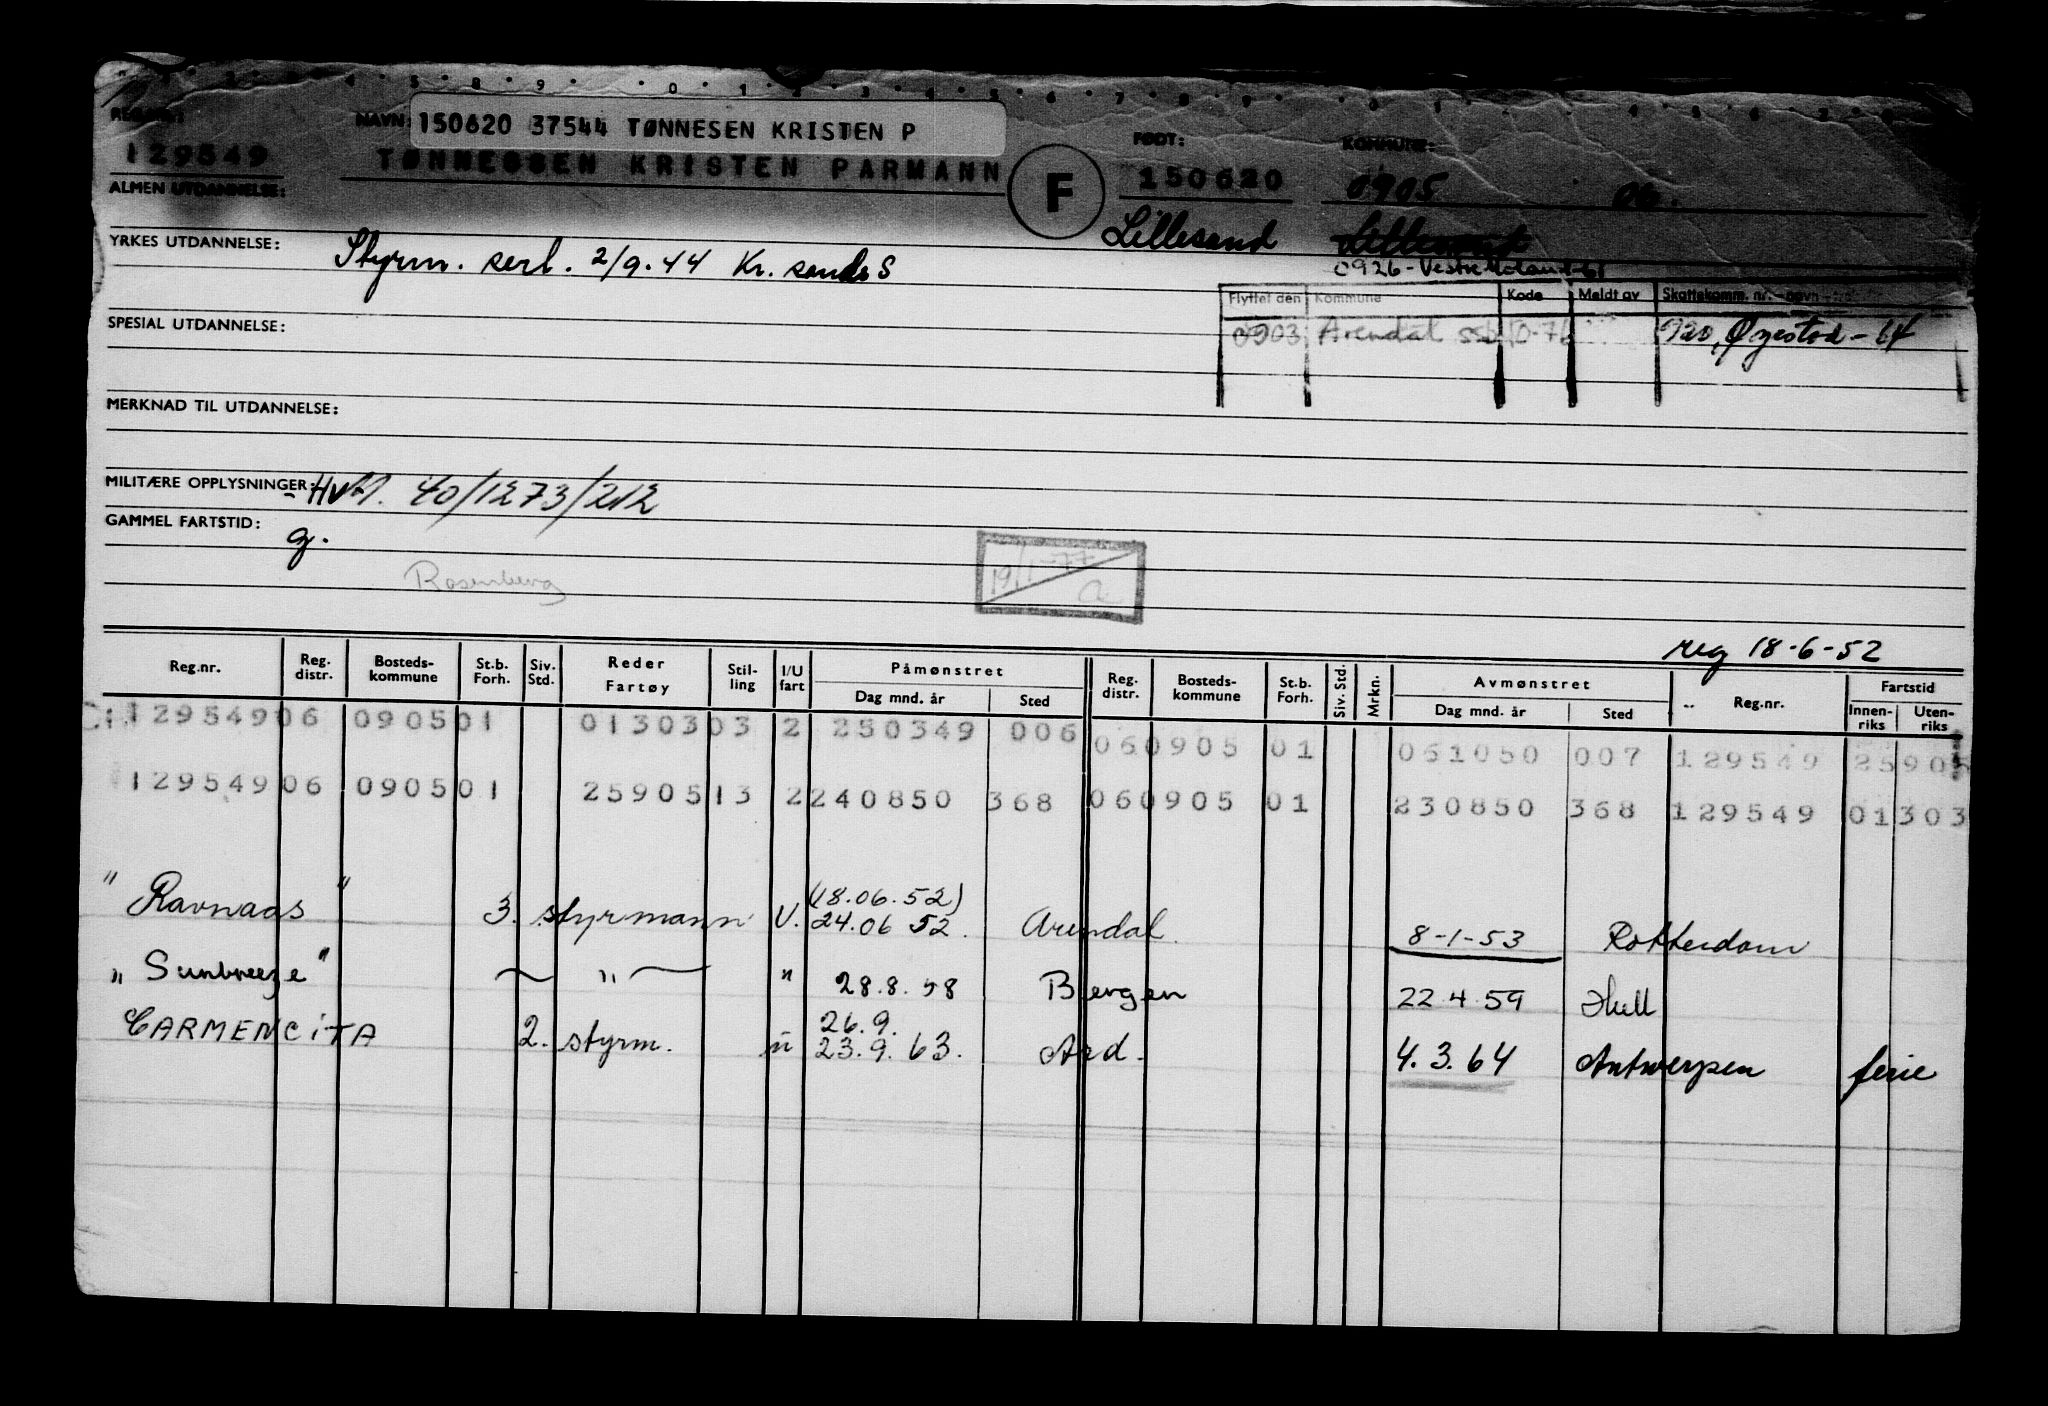 REG.NR:
129549
NAVN: 150620 37544 TØNNESEN KRISTEN P
TØNNESSEN KRISTEN PARMANN
F
FØDT:
150620
Lillesand
KOMMUNE:
0905 06.
Lillesand
0926-Vestre Moland-61
ALMEN UTDANNELSE:
YRKES UTDANNELSE: Styrm. sert. 2/9.44 Kr.sand S
Flyttet den Kommune Kode Meldt av Skattekomm. nr. - navn
0903 Arendal 10-76 920, Øyestad - 64
SPESIAL UTDANNELSE:
MERKNAD TIL UTDANNELSE:
MILITÆRE OPPLYSNINGER: 40/1273/212
GAMMEL FARTSTID: g.
Rosenberg
19/1-77
reg 18-6-52
Reg.nr. Reg. distr. Bosteds- kommune St.b. Forh. Siv. Std. Reder Fartøy Stil- ling I/U fart Påmønstret Dag mnd. år Sted Reg. distr. Bosteds- kommune St.b. Forh. Siv. Std. Mrkn. Avmønstret Dag mnd. år Sted Reg.nr. Fartstid Innen- riks Uten- riks
129549 06 0905 01 01303 03 2 250349 006 06 0905 01 061050 007 129549 25905
129549 06 0905 01 25905 13 2 240850 368 06 0905 01 230850 368 129549 01303
(18.06.52)
"Ravnaas" 3. styrmann U. 24.06 52. Arendal. 8-1-53 Rotterdam
"Sunbreeze" — " — " 28.8.58 Bergen 22.4.59 Hull
26.9.
CARMENCITA 2. styrm. u 23.9.63. Ard. 4.3.64 Antwerpen ferie